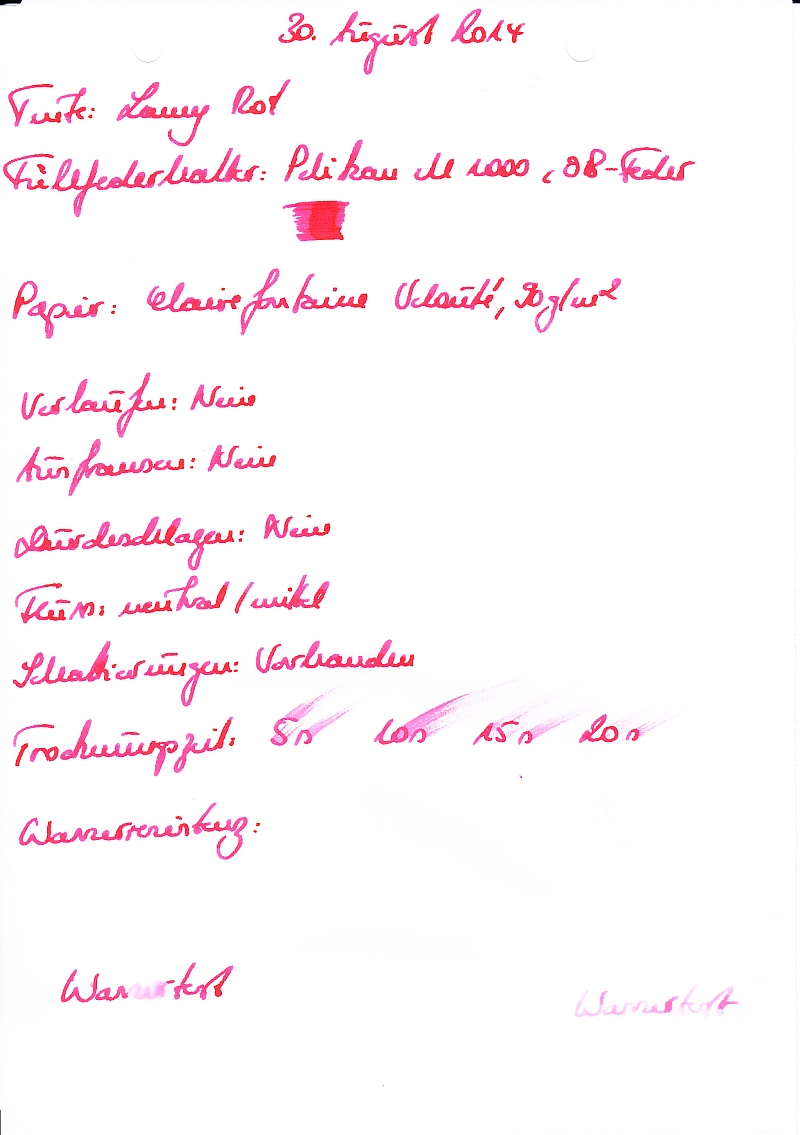 30. August 2014
Tinte: Lamy Rot
Füllfederhalter: Pelikan M 1000, OB-Feder
Papier: Clairefontaine Velouté, 90g/m²
Verlaufen: Nein
Ausfransen: Nein
Durchschlagen: Nein
Fluss: neutral/mittel
Schattierungen: Vorhanden
Trocknungszeit: 5s 10s 15s 20s
Wasserresistenz:
Wassertest Wassertest